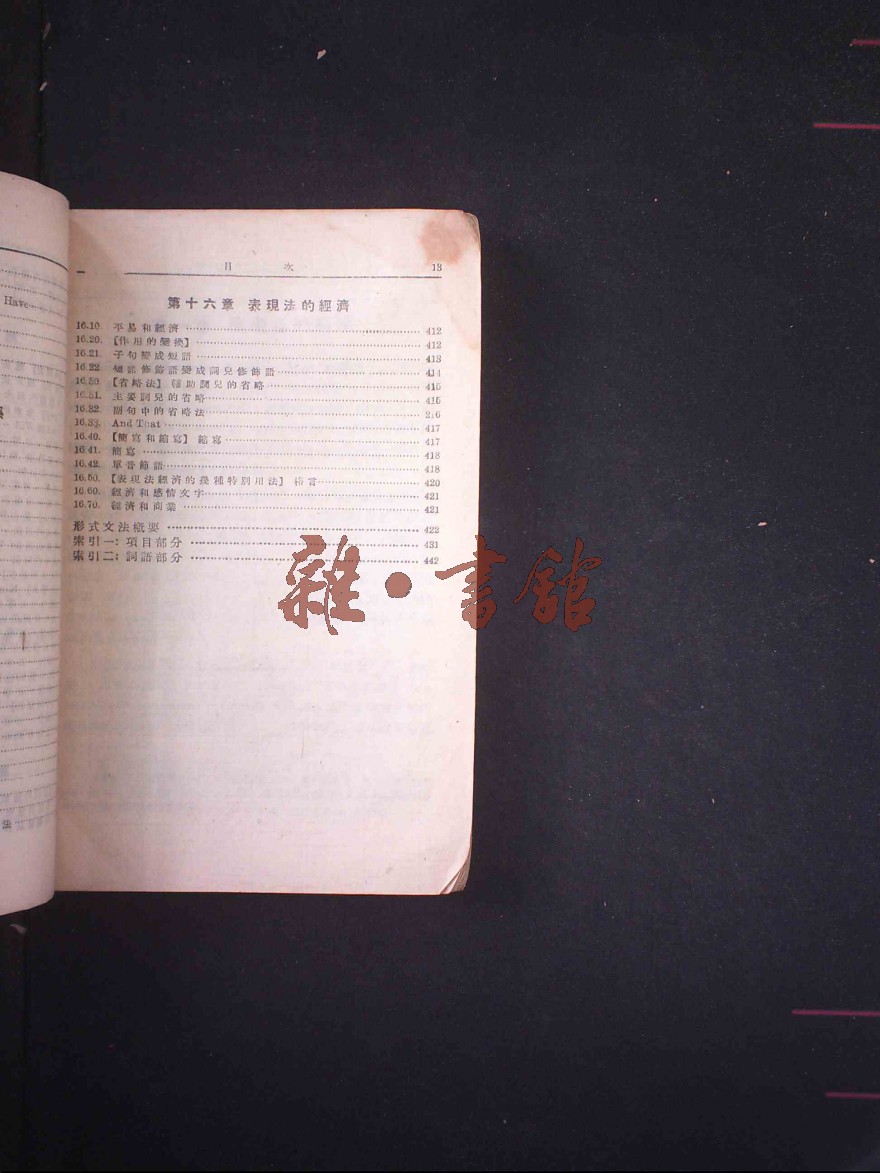 Have
法
目 次 13
第十六章 表現法的經濟
16.10. 平易和經濟 412
16.20. 【作用的變換】 412
16.21. 子句變成短語 413
16.22 短語修飾語變成詞兒修飾語 414
16.30. 【省略法】 輔助詞兒的省略 415
16.31. 主要詞兒的省略 416
16.32. 副句中的省略法
16.33. And That 417
16.40. 【簡寫和縮寫】 縮寫 417
16.41. 簡寫 418
16.42. 單音節語 418
16.50. 【表現法經濟的幾種特別用法】 格言 420
16.60. 經濟和感情文字 421
16.70. 經濟和商業 421
形式文法概要 422
索引一: 項目部分 431
索引二: 詞語部分 442
雜·書館